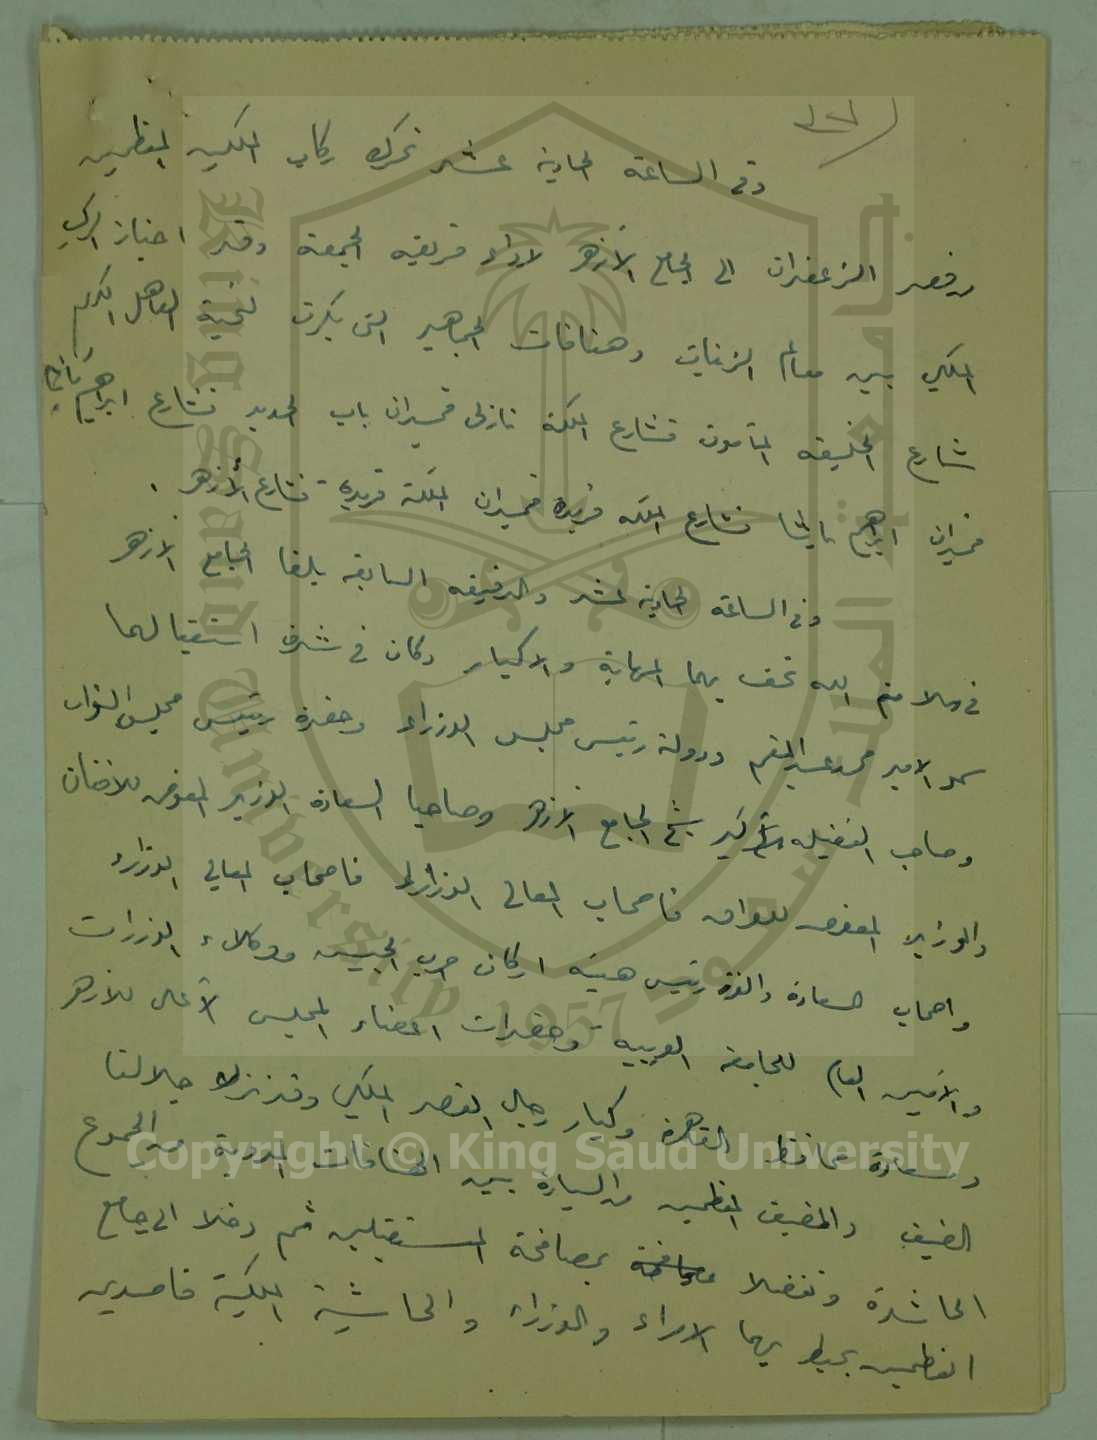 (١٢١)
وفى الساعة الحادية عشر تحرك ركاب الملكين المعظمين
وقصر الزعفران الى الجامع الأزهر لاداء فريضة الجمعة وقد اجتاز الركب
الملكي بين معالم الزينات وهتافات الجماهير التى بكرت لتحية العاهل الكريم
شارع الخليفة المأمون فشارع الملكة نازلى فميدان باب الحديد فشارع ابراهيم باشا
فميدان ابراهيم باشا فشارع الملكه فريدة فميدان الملكة فريدة فشارع الأزهر .
وفى الساعة الحادية عشر والدقيقه السابعه بلغا الجامع الأزهر
فى سلامة الله تحف بهما المهابة والاكبار وكان فى شرف استقبالهما
سمو الامير محمد عبد المنعم ودولة رئيس مجلس الوزراء وحضرة رئيس مجلس النواب
وصاحب الفضيله الأكبر شيخ الجامع الأزهر وصاحبا السعادة الوزير المفوض للافغان
والوزير المفوض للعراق فاصحاب المعالى الوزراء فاصحاب المعالي الوزراء
واصحاب السعادة والعزة رئيس هيئة اركان حرب الجيش ووكلاء الوزرات
والأمين العام للجامعة العربيه وحضرات اعضاء المجلس الأعلى للأزهر
وسعادة محافظ القاهرة وكبار رجال القصر الملكي وقد نزل جلالتا
الضيف والمضيف المعظمين من السيارة بين الهتافات المدوية من الجموع
الحاشدة وتفضلا بمصافحة المستقبلين ثم دخلا الى جامع
المعظمين يحيط بهما الامراء والوزراء والحاشية الملكية قاصدين
King Saud University
1957
جامعة الملك سعود
Copyright © King Saud University